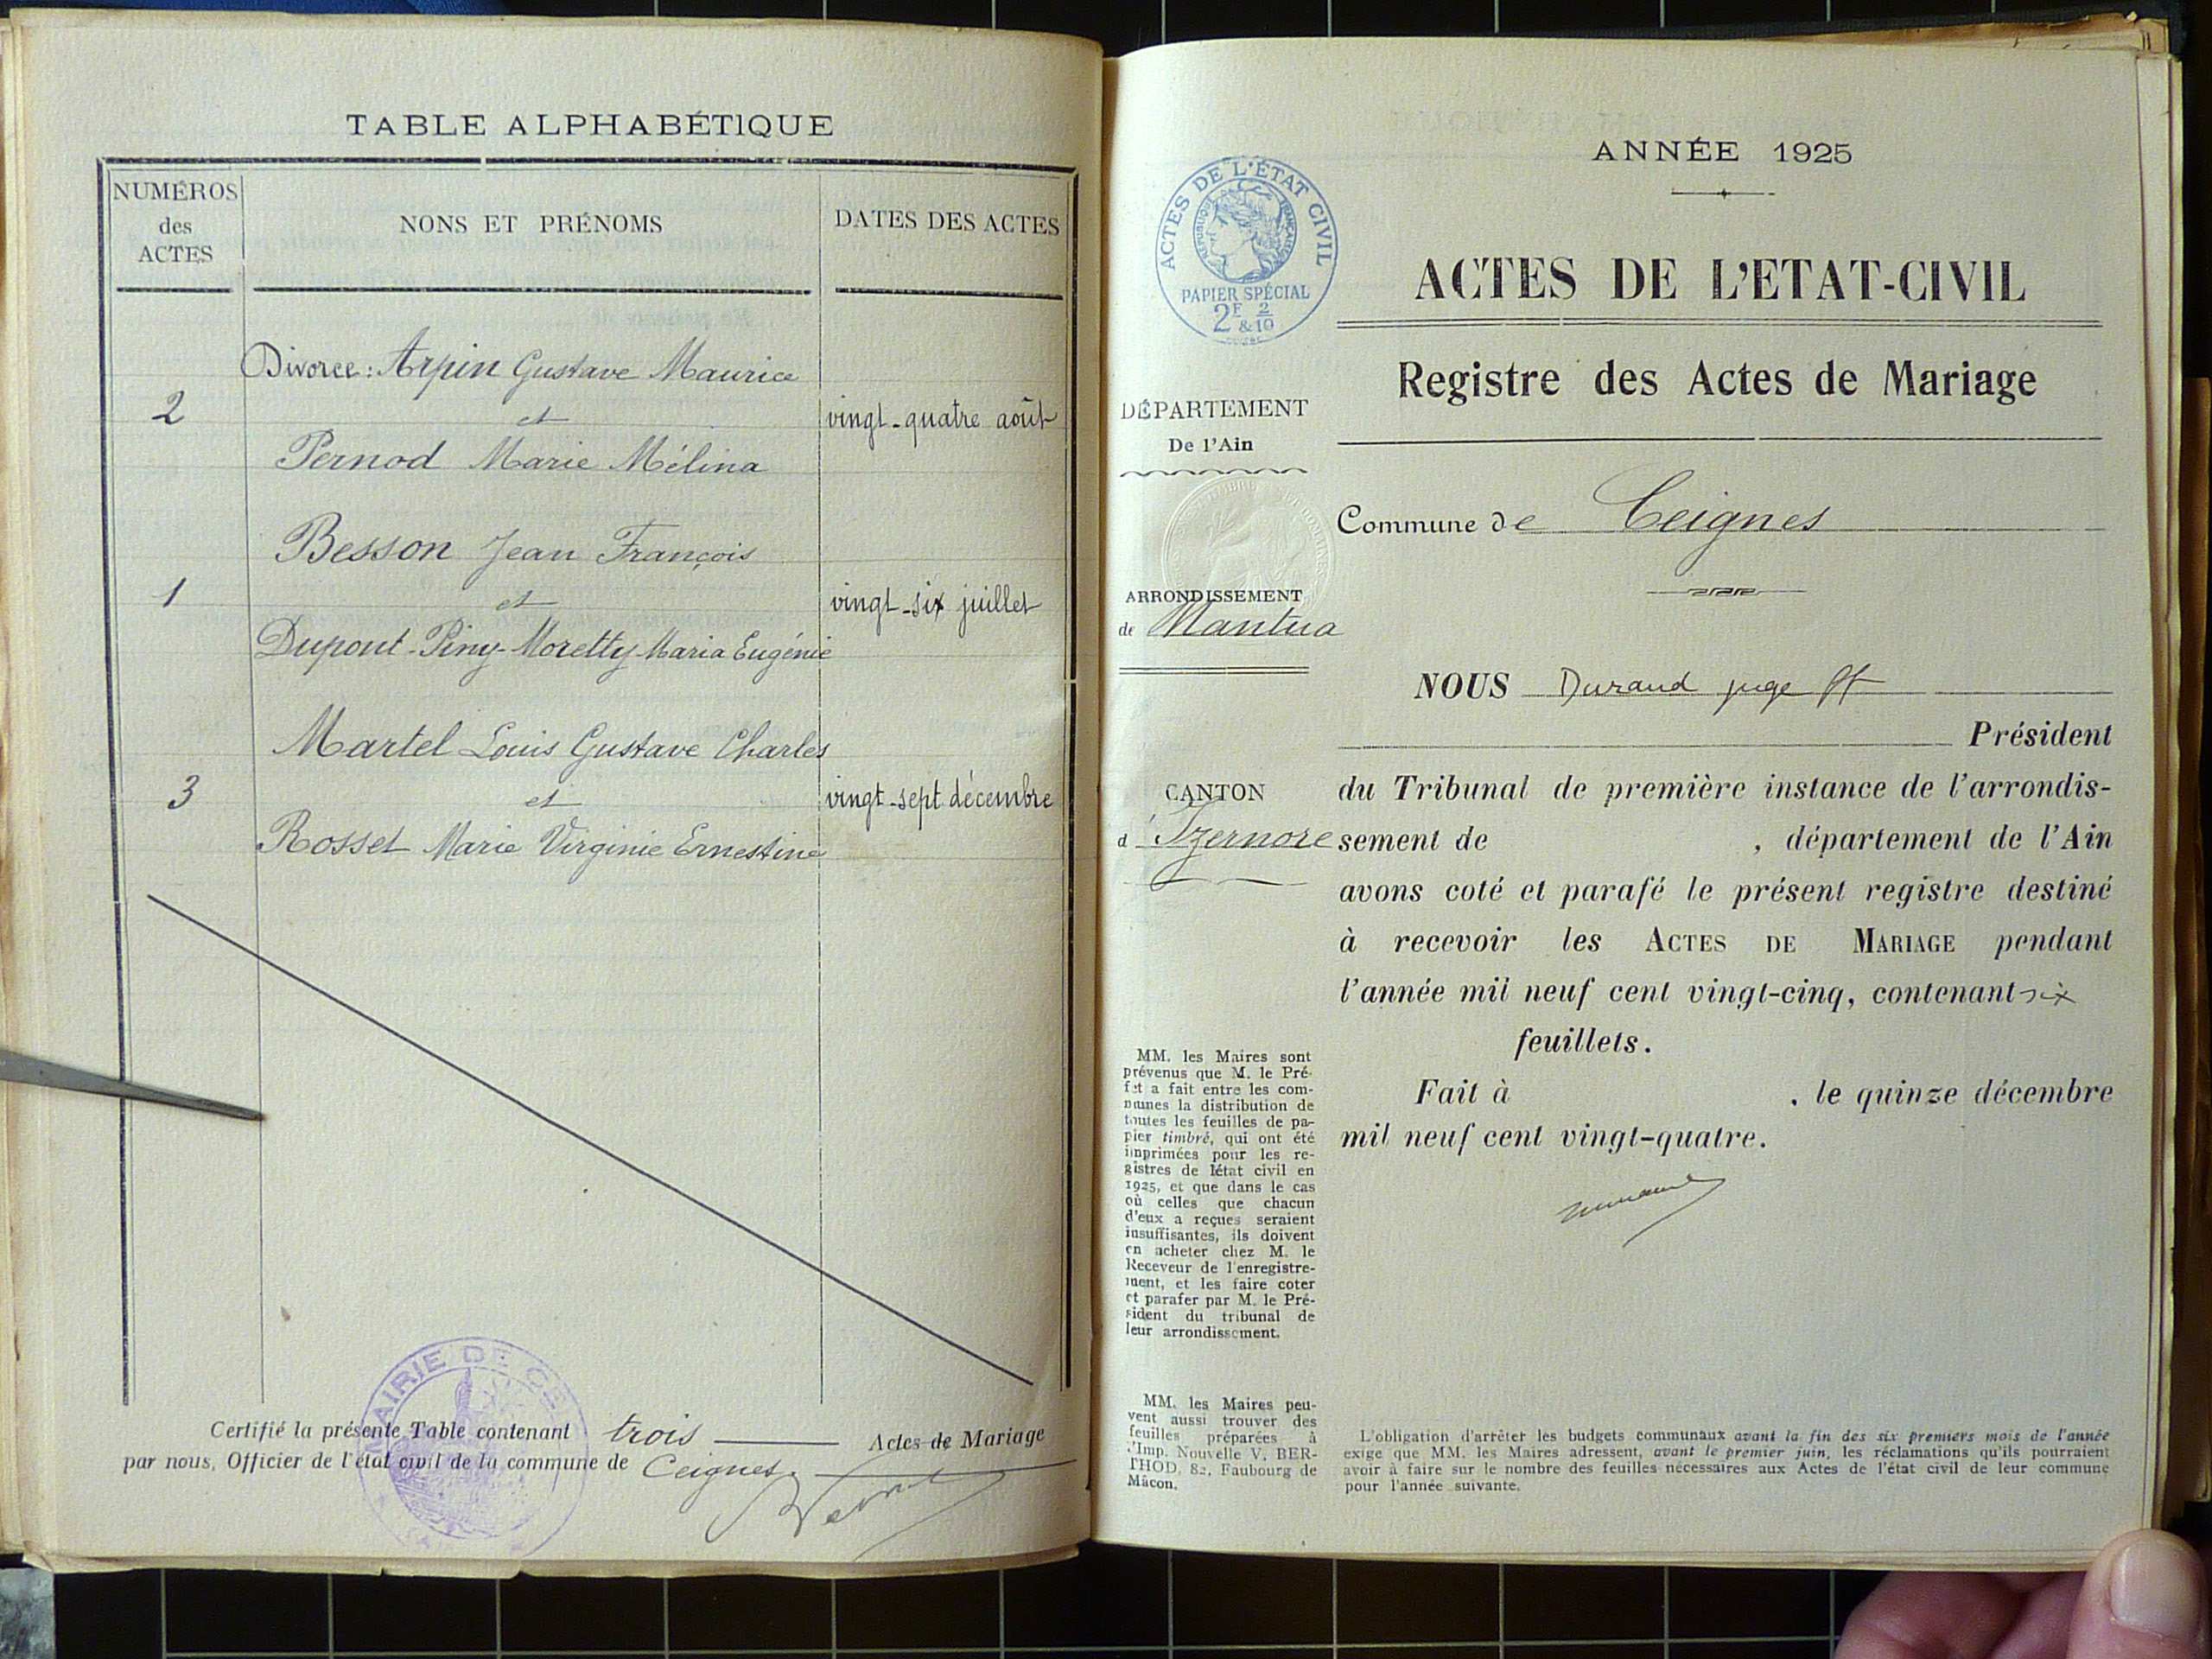 TABLE ALPHABÉTIQUE
NUMÉROS
des
ACTES
NONS ET PRÉNOMS
DATES DES ACTES
Divorce : Arpin Gustave Maurice
2 et vingt-quatre août
Pernod Marie Mélina
Besson Jean François
1 et vingt-six juillet
Dupont-Piny-Moretty Maria Eugénie
Martel Louis Gustave Charles
3 et vingt-sept décembre
Rosset Marie Virginie Ernestine
MAIRIE DE CE
Certifié la présente Table contenant trois Actes de Mariage
par nous, Officier de l'état civil de la commune de Ceignes.
ANNÉE 1925
ACTES DE L'ÉTAT CIVIL
RÉPUBLIQUE FRANÇAISE
PAPIER SPÉCIAL
2F 2
&10
ACTES DE L'ETAT-CIVIL
Registre des Actes de Mariage
DÉPARTEMENT
De l'Ain
Commune de Ceignes
ARRONDISSEMENT
de Nantua
CANTON
d'Izernore
NOUS Durand juge ff
Président
du Tribunal de première instance de l'arrondis-
sement de , département de l'Ain
avons coté et parafé le présent registre destiné
à recevoir les ACTES DE MARIAGE pendant
l'année mil neuf cent vingt-cinq, contenant six
feuillets.
Fait à , le quinze décembre
mil neuf cent vingt-quatre.
MM. les Maires sont
prévenus que M. le Pré-
fet a fait entre les com-
munes la distribution de
toutes les feuilles de pa-
pier timbré, qui ont été
imprimées pour les re-
gistres de létat civil en
1925, et que dans le cas
où celles que chacun
d'eux a reçues seraient
insuffisantes, ils doivent
en acheter chez M. le
Receveur de l'enregistre-
ment, et les faire coter
et parafer par M. le Pré-
sident du tribunal de
leur arrondissement.
MM. les Maires peu-
vent aussi trouver des
feuilles préparées à
l'Imp. Nouvelle V. BER-
THOD, 82, Faubourg de
Mâcon.
L'obligation d'arrêter les budgets communaux avant la fin des six premiers mois de l'année
exige que MM. les Maires adressent, avant le premier juin, les réclamations qu'ils pourraient
avoir à faire sur le nombre des feuilles nécessaires aux Actes de l'état civil de leur commune
pour l'année suivante.